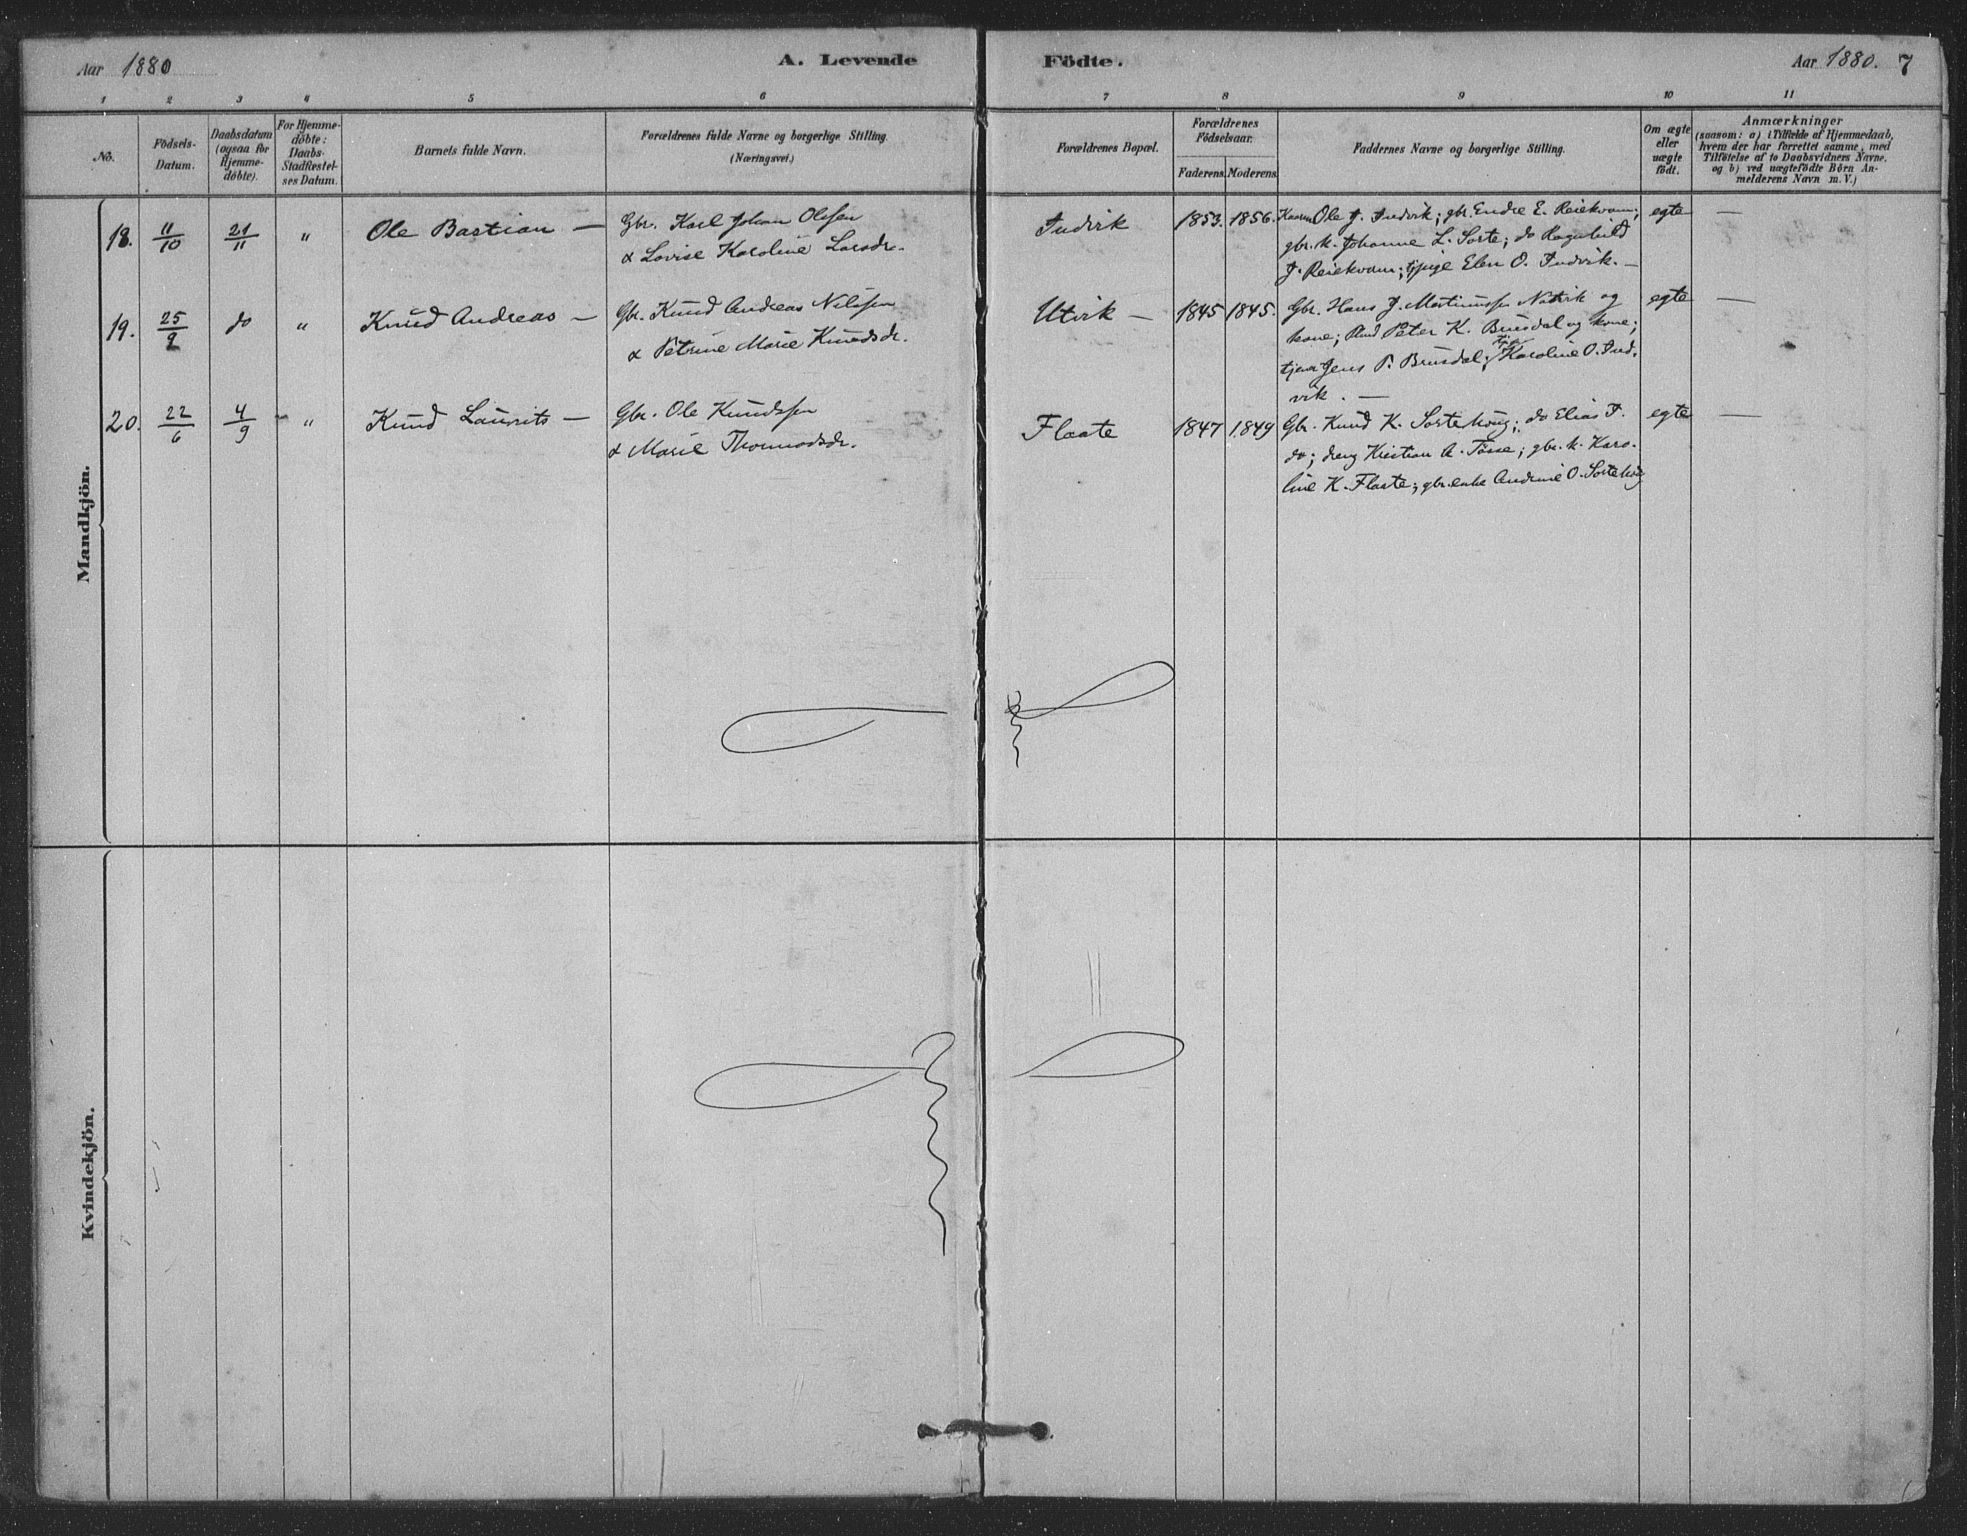 Aar 1880
A. Levende
Födte.
Aar 1880. 7
1 2 3 4 5 6 7 8 9 10 11
No.
Födsels-
Datum.
Daabsdatum
(ogsaa for
Hjemme-
döbte).
For Hjemme-
döbte:
Daabs-
Stadfæstel-
ses Datum.
Barnets fulde Navn.
Forældrenes fulde Navne og borgerlige Stilling.
(Næringsvei.)
Forældrenes Bopæl.
Forældrenes
Födselsaar.
Faderens. Moderens.
Faddernes Navne og borgerlige Stilling.
Om ægte
eller
uægte
födt.
Anmærkninger
(saasom: a) i Tilfælde af Hjemmedaab,
hvem der har forrettet samme, med
Tilföielse af to Daabsvidners Navne,
og b) ved uægtefödte Börn An-
melderens Navn m. V.)
Mandkjön.
18. 11/10 21/11 " Ole Bastian —
Gbr. Karl Johan Olssen
& Lovise Karoline Larsdr.
Indvik 1853. 1856.
Ole J. Indvik; gbr. Endre E. Reiekvam;
gbr. k. Johanne L. Sorte; do Ragnhild
J. Reiekvam; tjpige Elen O. Indvik. —
egte —
19. 25/9 do " Knud Andreas —
Gbr. Knud Andreas Nilssen
& Petrine Marie Knudsdr.
Utvik — 1845 1845.
Gbr. Hans J. Martinussen og
kone; Peter K. Brusdal og kone;
tjener Jens P. Brusdal; Karoline O. Ind.
vik. —
egte —
20. 22/6 4/9 — " Knud Laurits —
Gbr. Ole Knudssen
& Marie Thormodsdr.
Flaate 1847 1849
Gbr. Knud K. Sortehoug; do Elias
do; dreng Kristian A. Tosse; gbr. k. Karo-
line K. Flaate; gbr.enke Andrine O. Sortehoug
egte —
Kvindekjön.